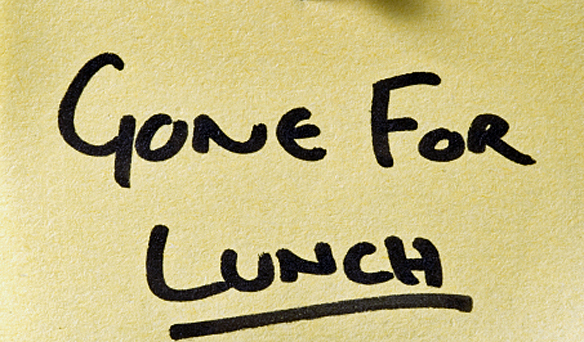 GONE FOR
LUNCH